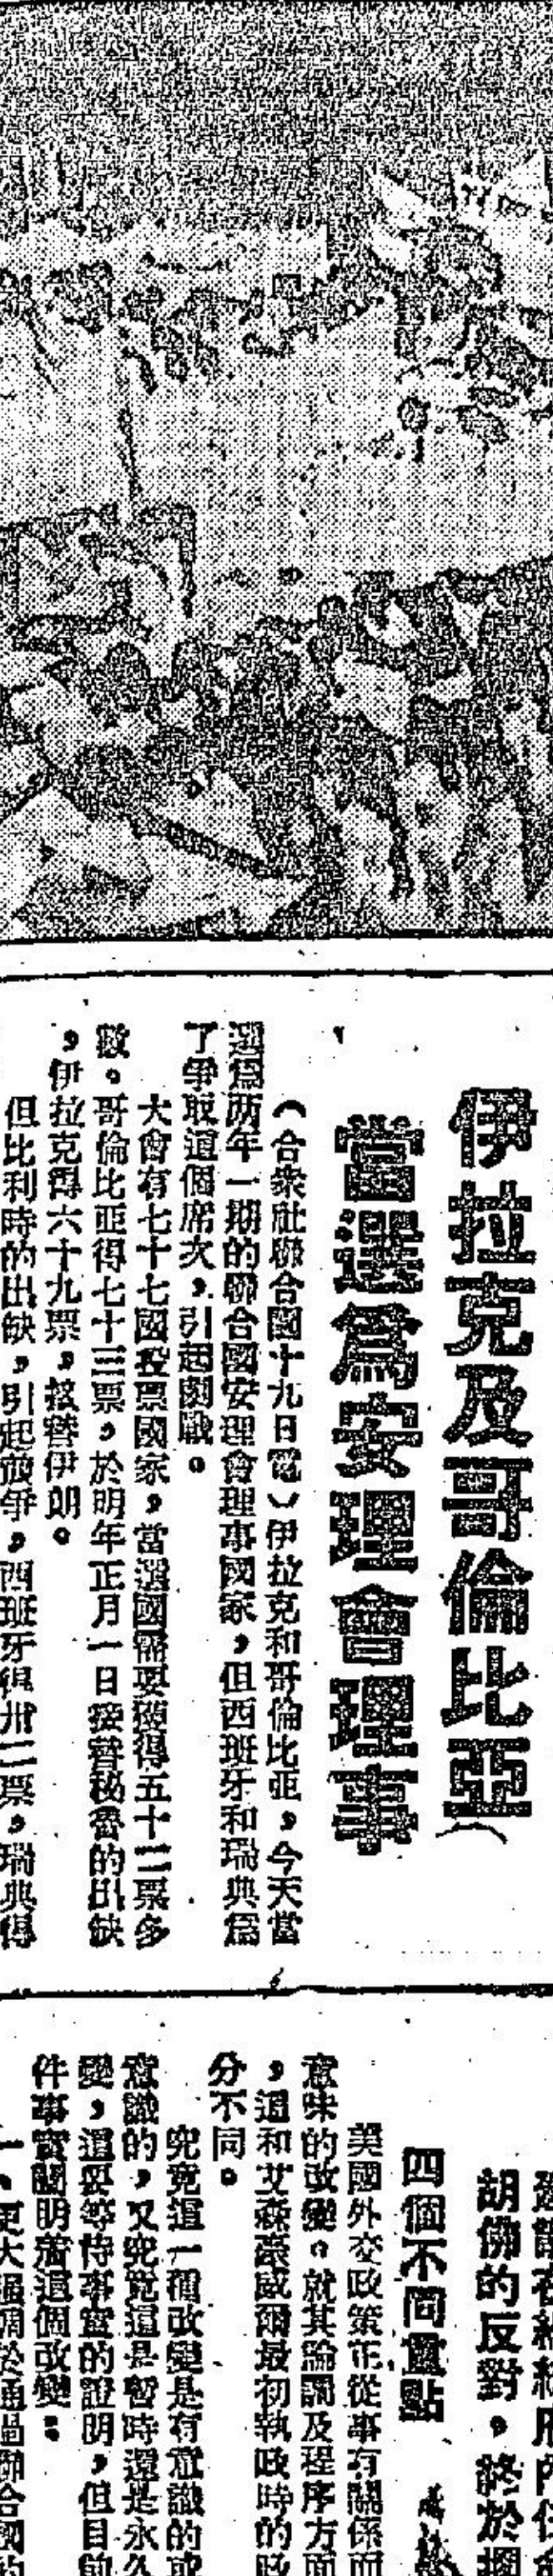 伊拉克及哥倫比亞
當選爲安理會理事
（合衆社聯合國十九日電）伊拉克和哥倫比亞，今天當
選爲两年一期的聯合國安理會理事國家，但西班牙和瑞典爲
了爭取這個席次，引起劇戰。
大會有七十七國投票國家，當選國需要獲得五十二票多
數。哥倫比亞得七十三票，於明年正月一日接替秘魯的出缺
，伊拉克得六十九票，接替伊朗。
但比利時的出缺，引起競爭，西班牙得卅二票，瑞典得
胡佛的反對，終於擱
四個不同重點
美國外交政策正從事有關係而
意味的改變。就其論調及程序方面
，這和艾森豪威爾最初執政時的政
分不同。
究竟這一種改變是有意識的或
意識的，又究竟這是暫時還是永久
變，還要等待事實的證明，但目前
件事實闡明着這個改變：
一、更大强調於通過聯合國的